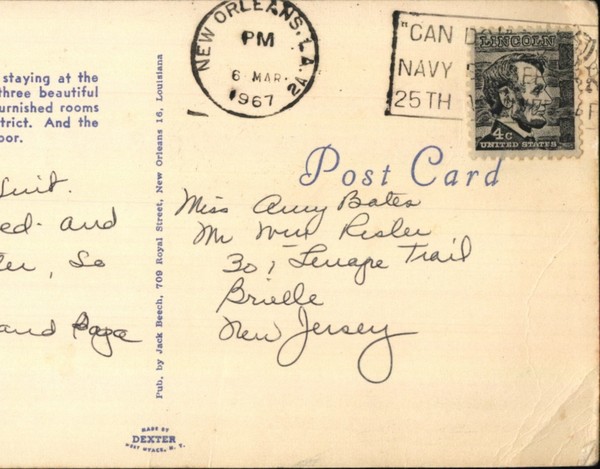 staying at the
three beautiful
urnished rooms
trict. And the
oor.
Suit.
ed and
ter, So
and Page
Pub. by Jack Beech, 709 Royal Street, New Orleans 16, Louisiana
MADE BY
DEXTER
WEST NYACK, N. Y.
NEW ORLEANS, LA.
PM
6 MAR
1967
2A
"CAN DO
NAVY
25TH
LINCOLN
4c
UNITED STATES
Post Card
Miss Amy Bates
Mr Wm Risler
301 Lenape Trail
Brielle
New Jersey